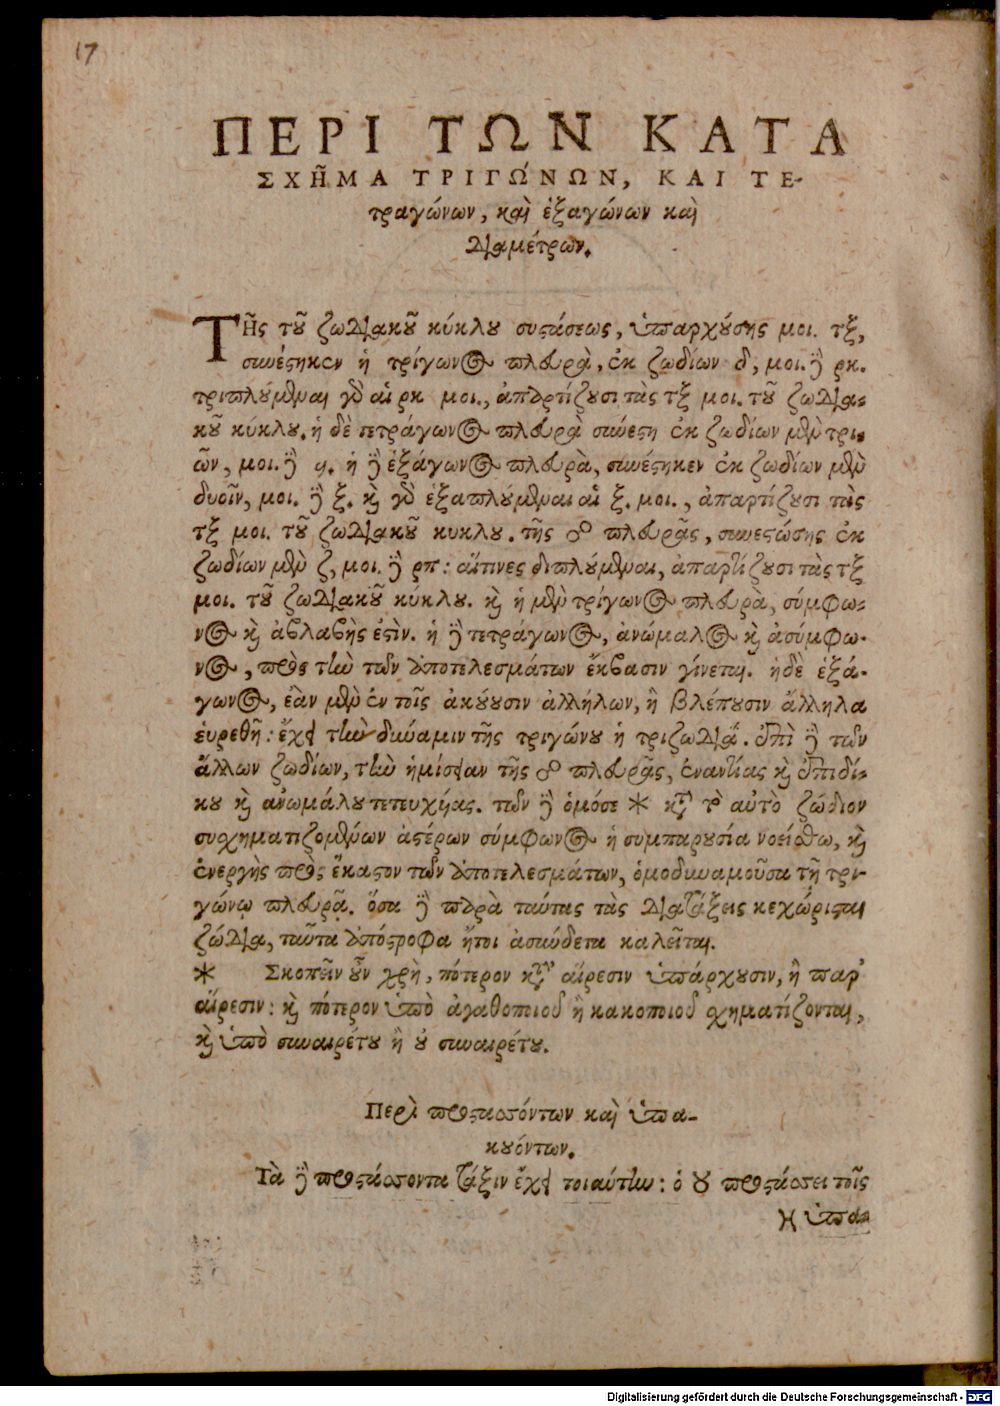 17
ΠΕΡΙ ΤΩΝ ΚΑΤΑ
ΣΧΗ͂ΜΑ ΤΡΙΓΏΝΩΝ, ΚΑΙ ΤΕ-
τραγώνων, καὶ ἑξαγώνων καὶ
διαμέτρων.
ΤΗ͂ς τοῦ ζωδιακοῦ κύκλου συστάσεως, ὑπαρχούσης μοι. τξ,
συνέστηκεν ἡ τρίγωνος πλευρὰ, ἐκ ζωδίων δ, μοι. δὲ ρκ.
τριπλούμεναι γὸ αἱ ρκ μοι., ἀπαρτίζουσι τὰς τξ μοι. τοῦ ζωδια-
κοῦ κύκλου. ἡ δὲ τετράγωνος πλευρὰ συνέστη ἐκ ζωδίων μὲν τρι-
ῶν, μοι. δὲ ϟ. ἡ δὲ ἑξάγωνος πλευρὰ, συνέστηκεν ἐκ ζωδίων μὲν
δυοῖν, μοι. δὲ ξ. καὶ γὸ ἑξαπλούμεναι αἱ ξ. μοι., ἀπαρτίζουσι τὰς
τξ μοι. τοῦ ζωδιακοῦ κυκλου. τῆς ☍ πλευρᾶς, συνεστώσης ἐκ
ζωδίων μὲν ζ, μοι. δὲ ρπ: αἵτινες διπλούμεναι, ἀπαρτίζουσι τὰς τξ
μοι. τοῦ ζωδιακοῦ κύκλου. καὶ ἡ μὲν τρίγωνος πλευρὰ, σύμφω-
νος καὶ ἀβλαβὴς ἐστὶν. ἡ δὲ τετράγωνος, ἀνώμαλος καὶ ἀσύμφω-
νος, πρὸς τὴν τῶν ἀποτελεσμάτων ἔκβασιν γίνεται. ἡ δὲ ἑξά-
γωνος, ἐὰν μὲν ἐν τοῖς ἀκούουσιν ἀλλήλων, ἢ βλέπουσιν ἄλληλα
εὑρεθῆ: ἔχει τὴν δύναμιν τῆς τριγώνου ἡ τριζωδία. ἐπὶ δὲ τῶν
ἄλλων ζωδίων, τὴν ἡμίσειαν τῆς ☍ πλευρᾶς, ἐναντίας καὶ ἐπιδί-
κου καὶ ἀνωμάλου τετευχύιας. τῶν δὲ ὁμόσε ⚹ κτ τὸ αὐτὸ ζώδιον
συσχηματιζομένων ἀστέρων σύμφωνος ἡ συμπαρουσία νοείσθω, καὶ
ἐνεργὴς πρὸς ἕκαστον τῶν ἀποτελεσμάτων, ὁμοδυναμοῦσα τῆ τρι-
γώνῳ πλευρᾷ. ὅσα δὲ παρὰ ταύτας τὰς διατάξεις κεχώρισται
ζώδια, ταῦτα ἀπόστροφα ἤτοι ἀσύνδετα καλεῖται.
⚹ Σκοπεῖν οὖν χρὴ, πότερον κτ αἵρεσιν ὑπάρχουσιν, ἢ παρ'
αἵρεσιν: καὶ πότερον ὑπὸ ἀγαθοποιοῦ ἢ κακοποιοῦ σχηματίζονται,
καὶ ὑπὸ συναιρέτου ἢ οὐ συναιρέτου.
Περὶ προστασσόντων καὶ ὑπα-
κουόντων.
Τὰ δὲ προστάσσοντα τάξιν ἔχει τοιαύτην: ὁ ♉ προστάσσει τοῖς
♓ ὑπα-
Digitalisierung gefördert durch die Deutsche Forschungsgemeinschaft - DFG